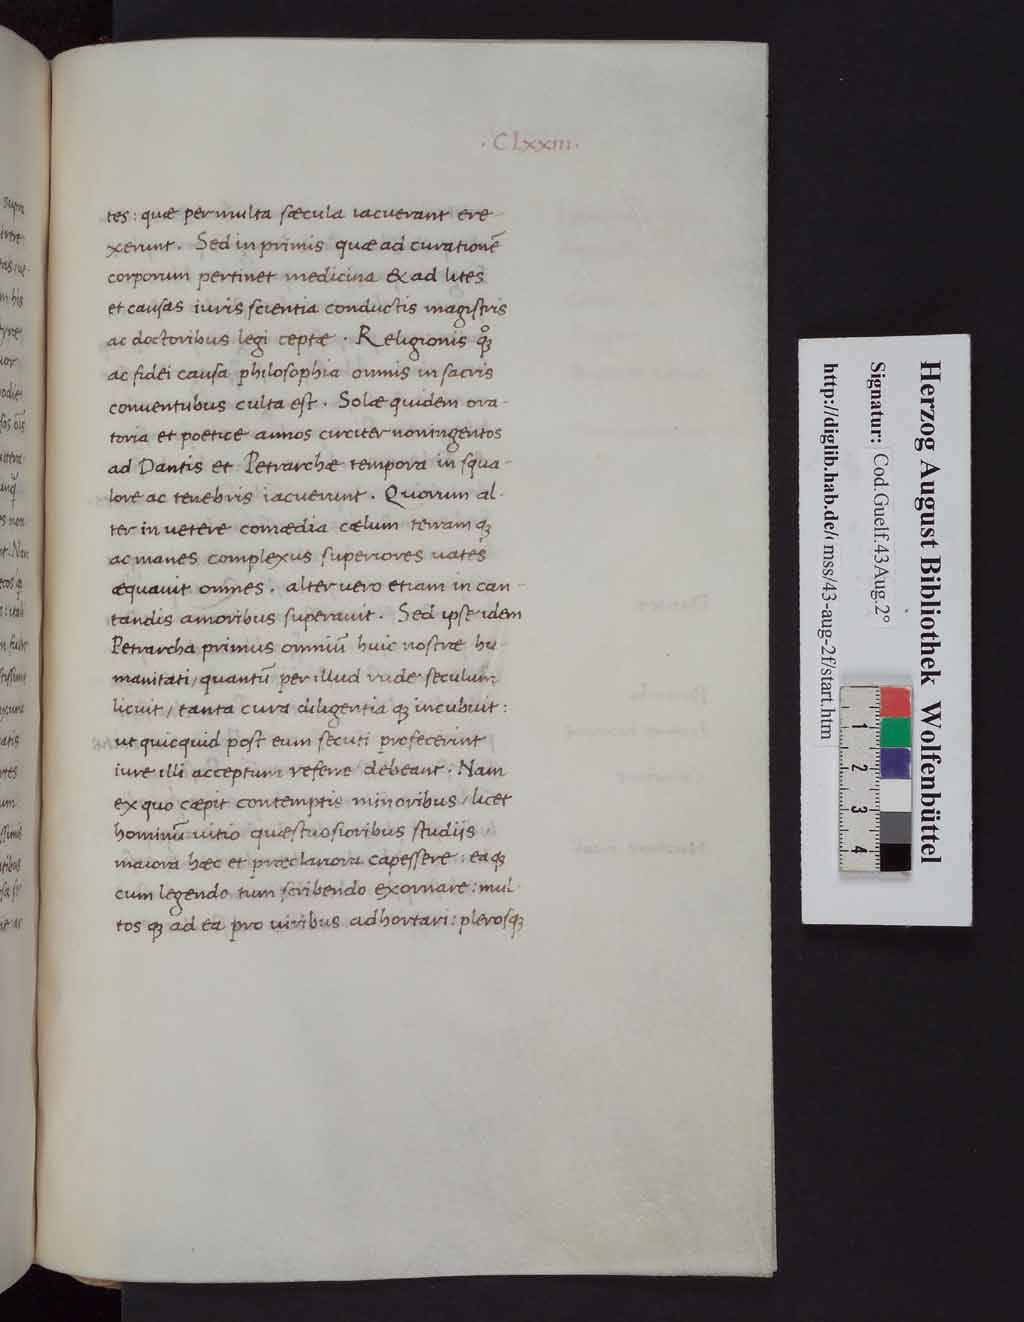 · CLxxiii ·
tes: quæ per multa sæcula iacuerant ere
xerunt. Sed in primis quæ ad curationē
corporum pertinet medicina & ad lites
et causas iuris scientia conductis magistris
ac doctoribus legi ceptæ. Religionis qꝫ
ac fidei causa philosophia omnis in sacris
conuentubus culta est. Solæ quidem ora-
toria et poetice annos circiter noningentos
ad Dantis et Petrarchæ tempora in squa-
lore ac tenebris iacuerunt. Quorum al-
ter in uetere comædia cælum terram qꝫ
ac manes complexus superiores uates
æquauit omnes. alter uero etiam in can-
tandis amoribus superauit. Sed ipse idem
Petrarcha primus omniū huic nostræ hu
manitati / quantū per illud rude seculum
licuit / tanta cura diligentia qꝫ incubuit:
ut quicquid post eum secuti profecerint
iure illi acceptum referre debeant. Nam
ex quo cæpit contemptis minoribus / licet
hominū uitio quæstuosioribus studijs /
maiora hæc et præclariora capessere: ea qꝫ
cum legendo tum scribendo exornare: mul-
tos qꝫ ad ea pro uiribus adhortari: plerosqꝫ
Herzog August Bibliothek Wolfenbüttel
Signatur: Cod.Guelf.43 Aug.2°
http://diglib.hab.de/ mss/43-aug-2f/start.htm
1
2
3
4